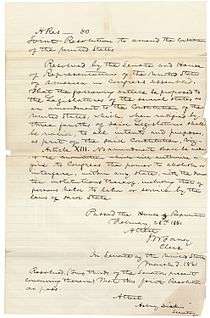 H Res — 80
Joint Resolution to amend the Constitution
of the United States
Resolved by the Senate and House
of Representatives of the United States of
America in Congress assembled,
That the following article be proposed to
the Legislatures of the several States as
an Amendment to the Constitution of the
United States, which, when ratified by
three fourths of said Legislatures, shall
be valid, to all intents and purposes,
as part of the said Constitution, viz:
Article XIII. No amendment shall be made
to the Constitution which will authorize
or give to Congress the power to abolish
or interfere, within any State, with the
domestic institutions thereof, including that of
persons held to labor or service by the
laws of said State.
Passed the House of Representatives
February 28, 1861
Attest
J W Forney
Clerk
In Senate of the United States
March 2, 1861
Resolved, Two thirds of the Senators present
concurring therein, That this Joint Resolution
do pass.
Attest
Asbury Dickins
Secretary